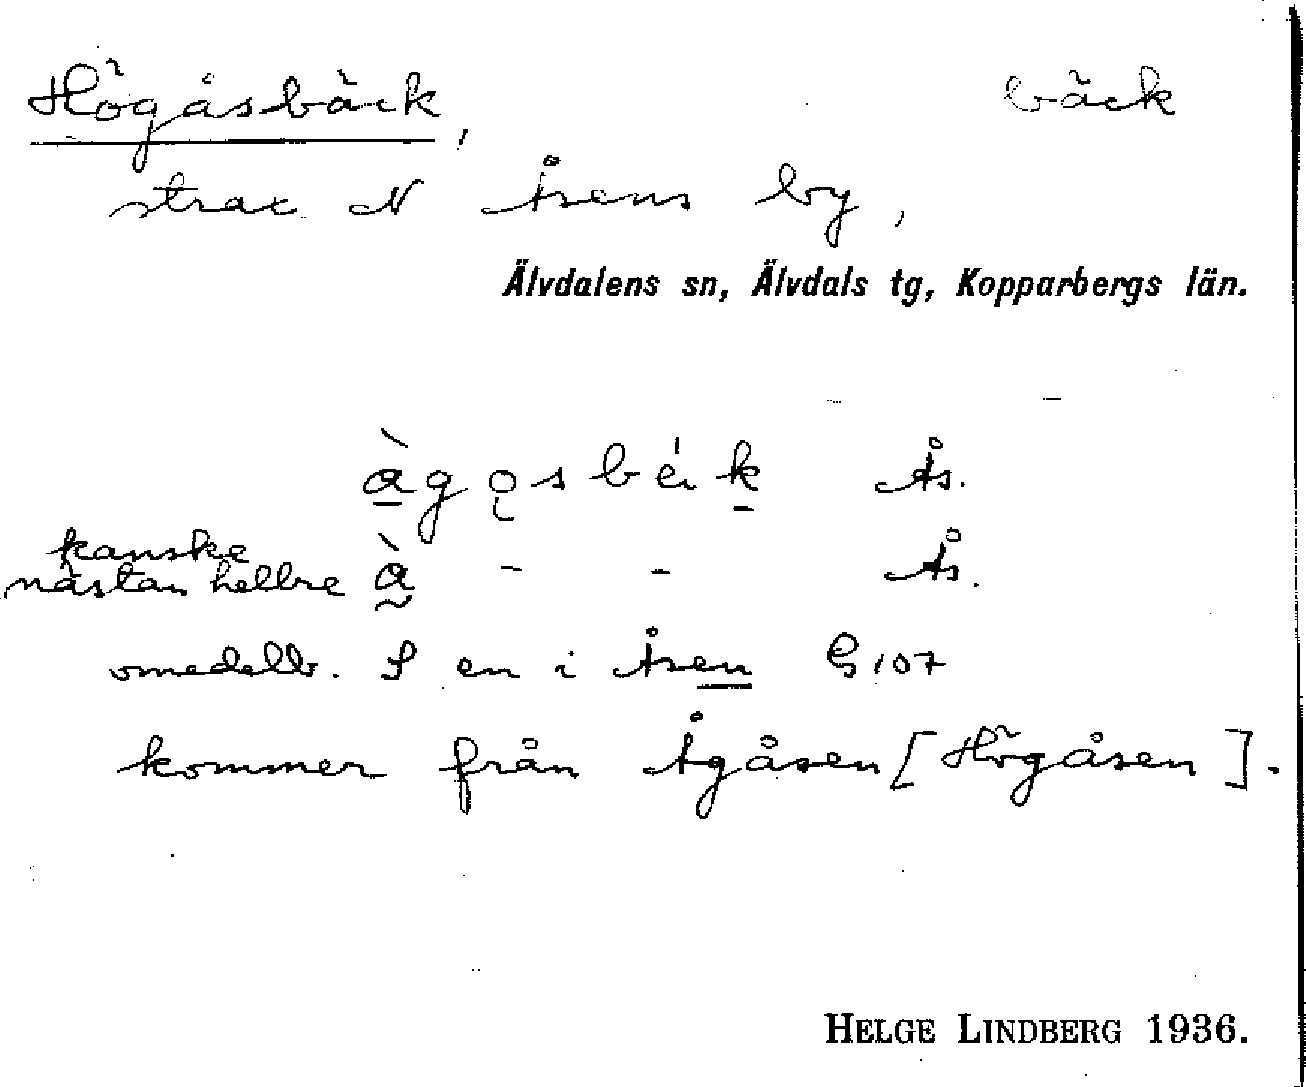 Högåsbäck, bäck
strax N Åsens by,
Älvdalens sn, Älvdals tg, Kopparbergs län.
àgǫsbék Ås.
kanske
nästan hellre à - - Ås.
omedelb. S en i Åsen G 107
kommer från Ågåsen [Högåsen].
HELGE LINDBERG 1936.